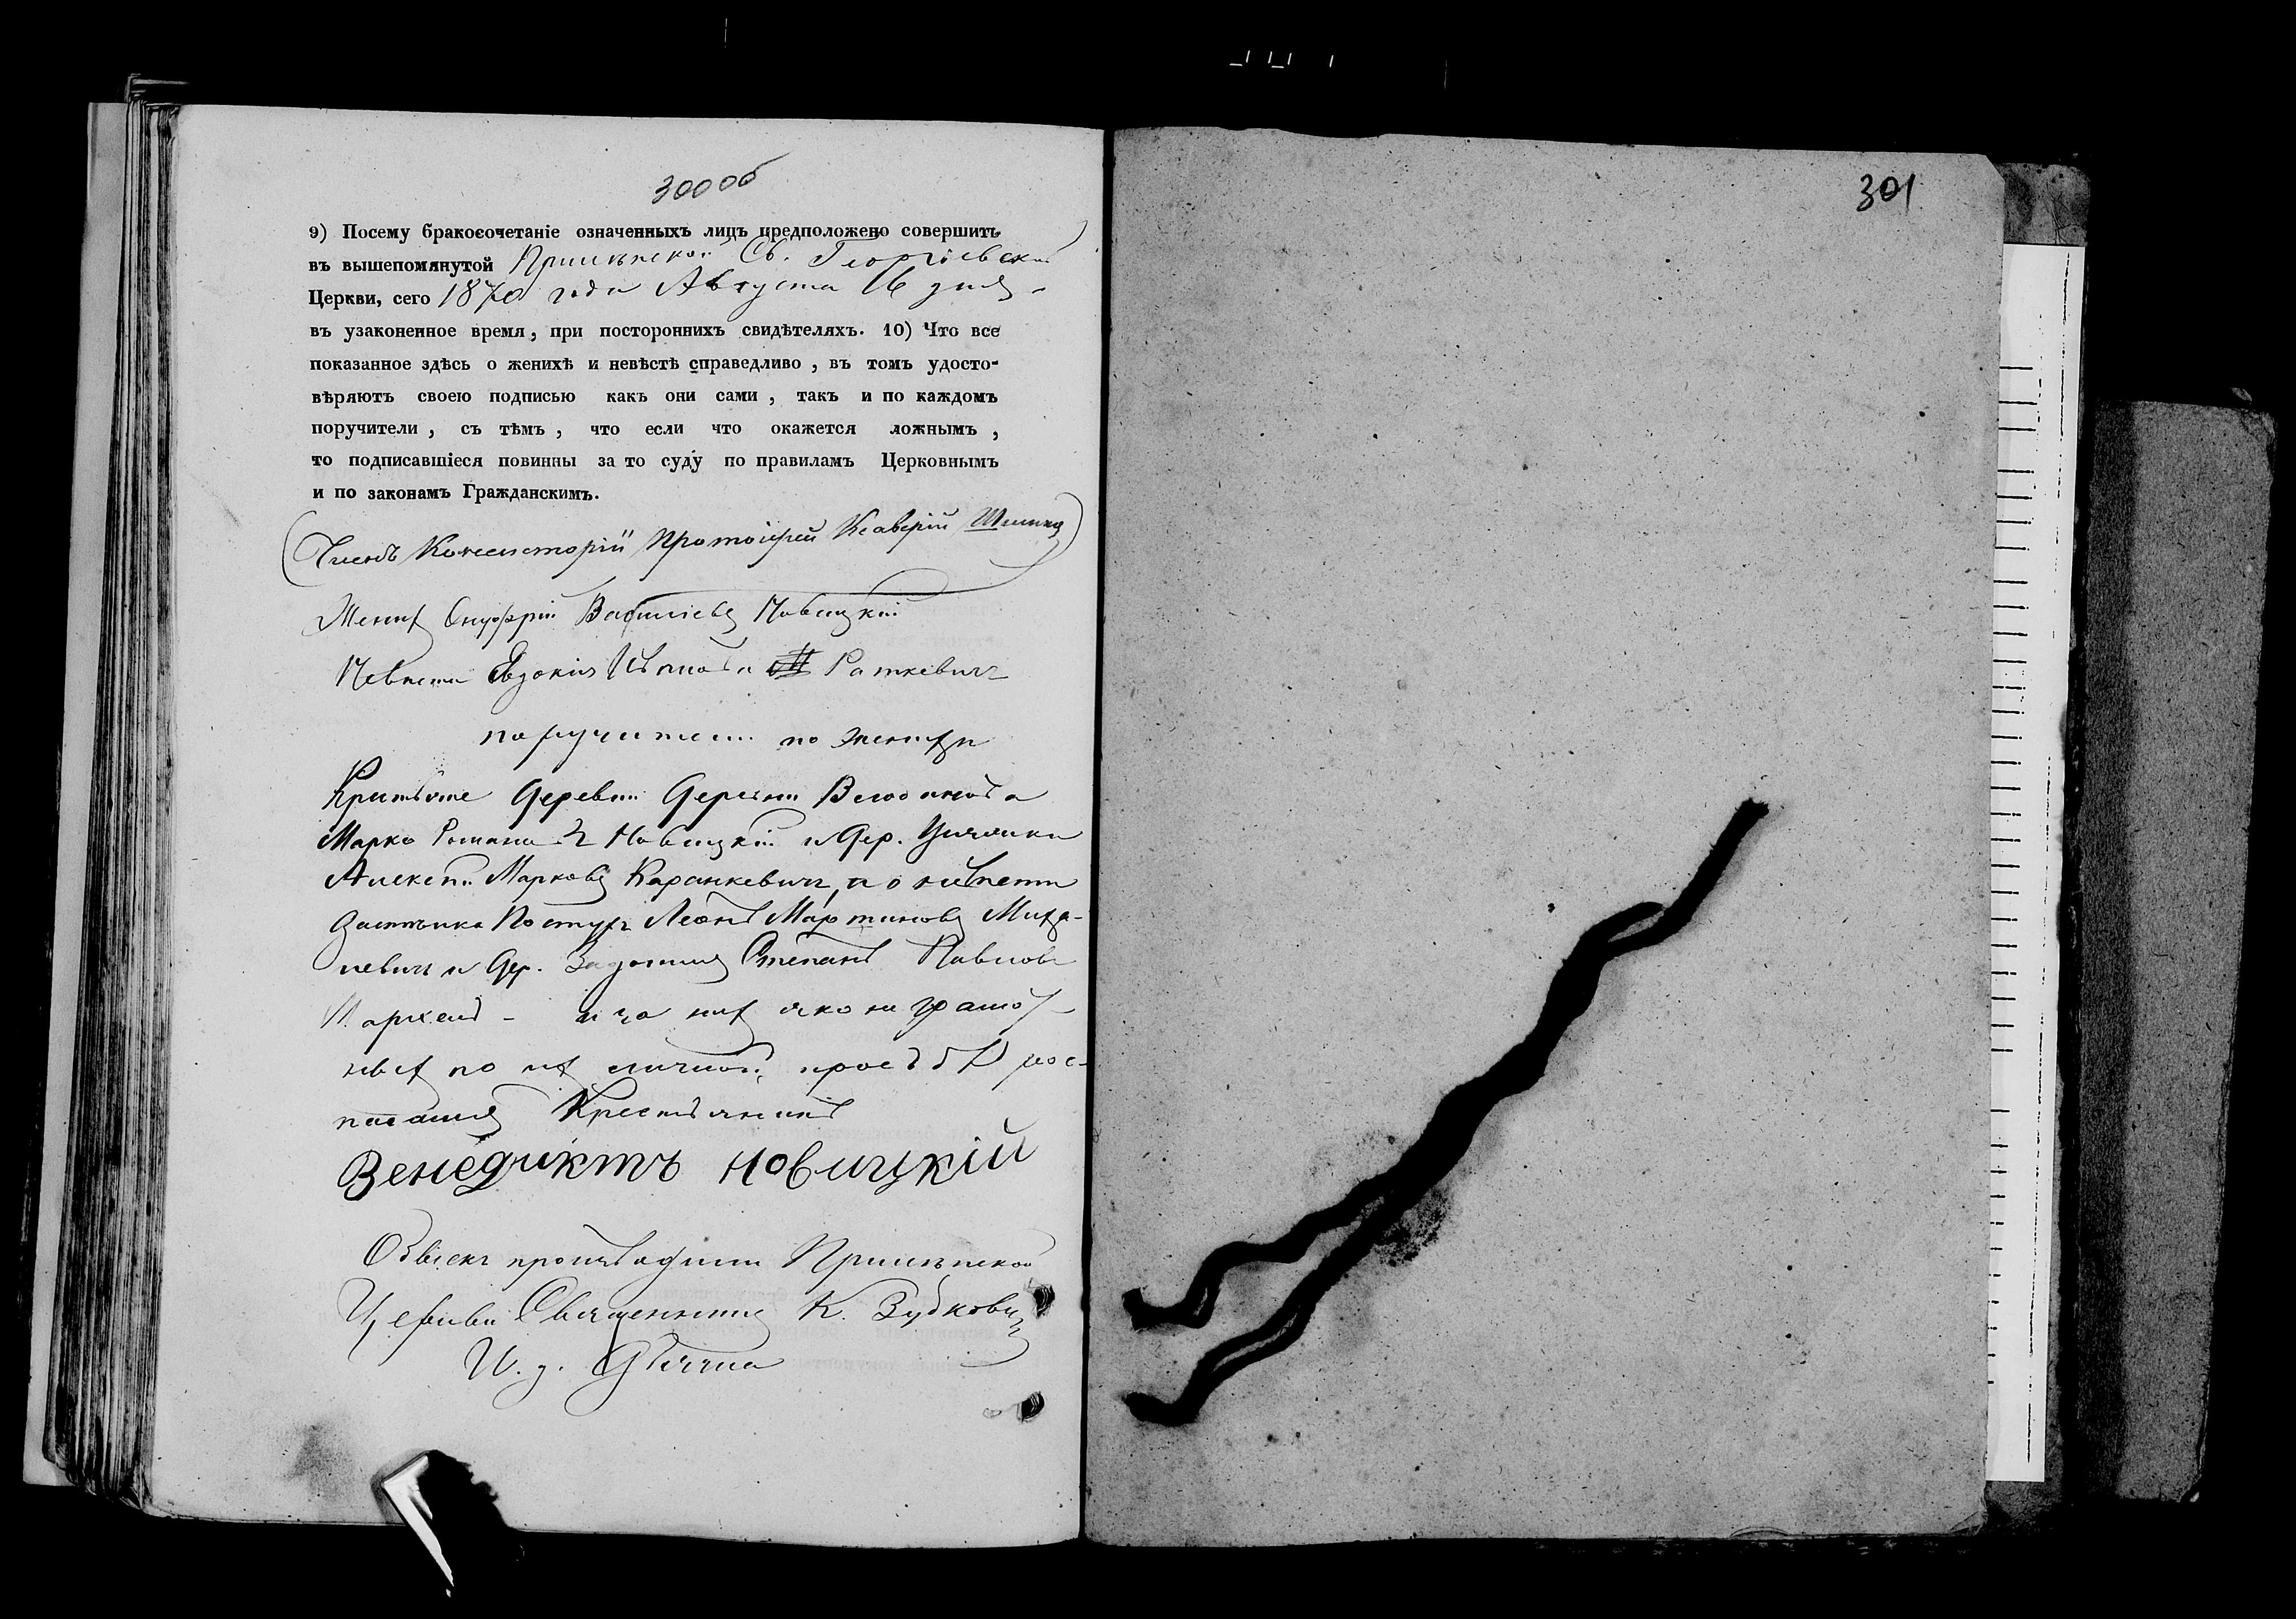 300 об
9) Посему бракосочетаніе означенныхъ лицъ предположено совершить
въ вышепомянутой Прилѣпской Св. Георгіевской
Церкви, сего 1870 года Августа 16 дня
въ узаконенное время, при постороннихъ свидѣтеляхъ. 10) Что все
показанное здѣсь о женихѣ и невѣстѣ справедливо, въ томъ удосто-
вѣряютъ своею подписью какъ они сами, такъ и по каждомъ
поручители, съ тѣмъ, что если что окажется ложнымъ,
то подписавшіеся повинны за то суду по правиламъ Церковнымъ
и по законамъ Гражданскимъ.
(Членъ Консисторіи Протоіерей Ксаверій)
Женихъ Онуфрій Васильевъ Новицкій
Невѣста Евдокія Иванова Раткевичъ
поручители по женихѣ
деревни
Марко Новицкій и дер.
Алексѣй Марковъ Каранкевичъ, по невѣсте
Леонъ Мартиновъ Миха-
левичъ и дер. Степанъ Павловъ
а за нихъ яко не грамот-
ныхъ по их личной прозьбѣ рос-
писался Крестьянинъ
Венедиктъ новицкій
Обыскъ производили Прилѣпской
Церкви Священникъ К. Зубковичъ
И. д. Дьячка
301